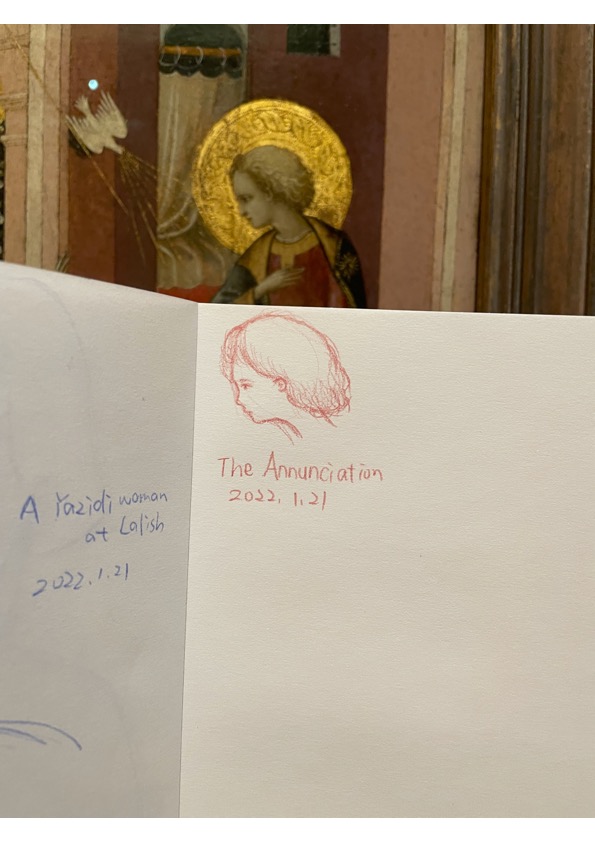 A Yazidi woman
at Lalish
2022.1.21
The Annunciation
2022.1.21